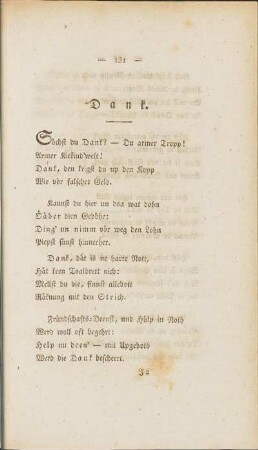 — 131 —
Dank.
Söchst du Dank? — Du armer Tropp!
Armer Kiekindwelt!
Dank, den krigst du up den Kopp
Wie vör falscher Geld.
Kannst du hier un doa wat dohn
Öäder dien Geböhr:
Ding' un nimm vör weg den Lohn
Piepst sunst hinnerher.
Dank, dät is ne harte Nott,
Hät keen Toalbrett nich:
Mellst du die, finnst allebott
Räknung mit den Steich.
Fründschafts-Deensk, und Hülp in Noth
Werd woll oft begehrt:
Help nu doen' — mit Upgeboth
Werd die Dank bescheert.
J 2